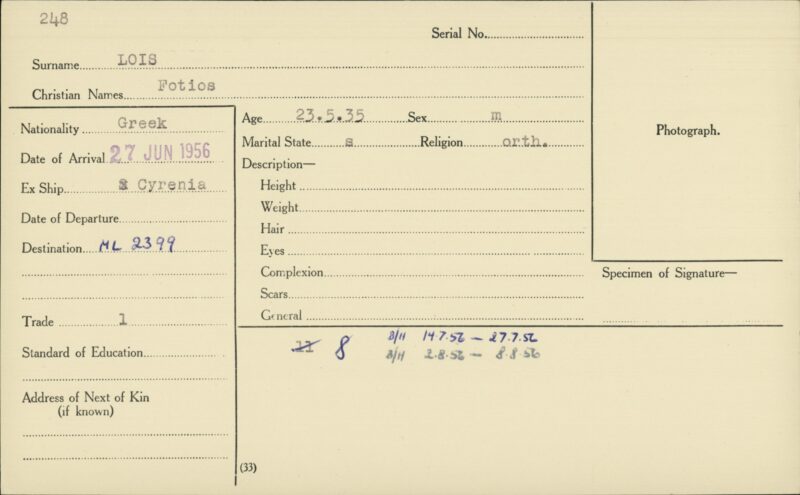 248
Serial No.
Surname LOIS
Christian Names Fotios
Nationality Greek
Date of Arrival 27 JUN 1956
Ex Ship Cyrenia
Date of Departure
Destination ML 2399
Trade 1
Standard of Education
Address of Next of Kin
(if known)
Age 23.5.35 Sex m
Marital State s Religion orth.
Description—
Height
Weight
Hair
Eyes
Complexion
Scars
General
Photograph.
Specimen of Signature—
11 8 B/H 14.7.56 — 27.7.56
B/H 2.8.56 — 8.8.56
(33)